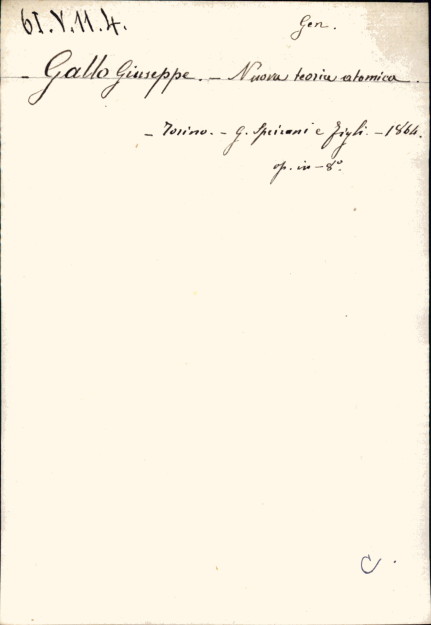 61.V.11.4.
Gen.
- Gallo Giuseppe. - Nuova teoria atomica.
- Torino. - G. Speirani e Figli. - 1864.
op. in - 8°.
C.